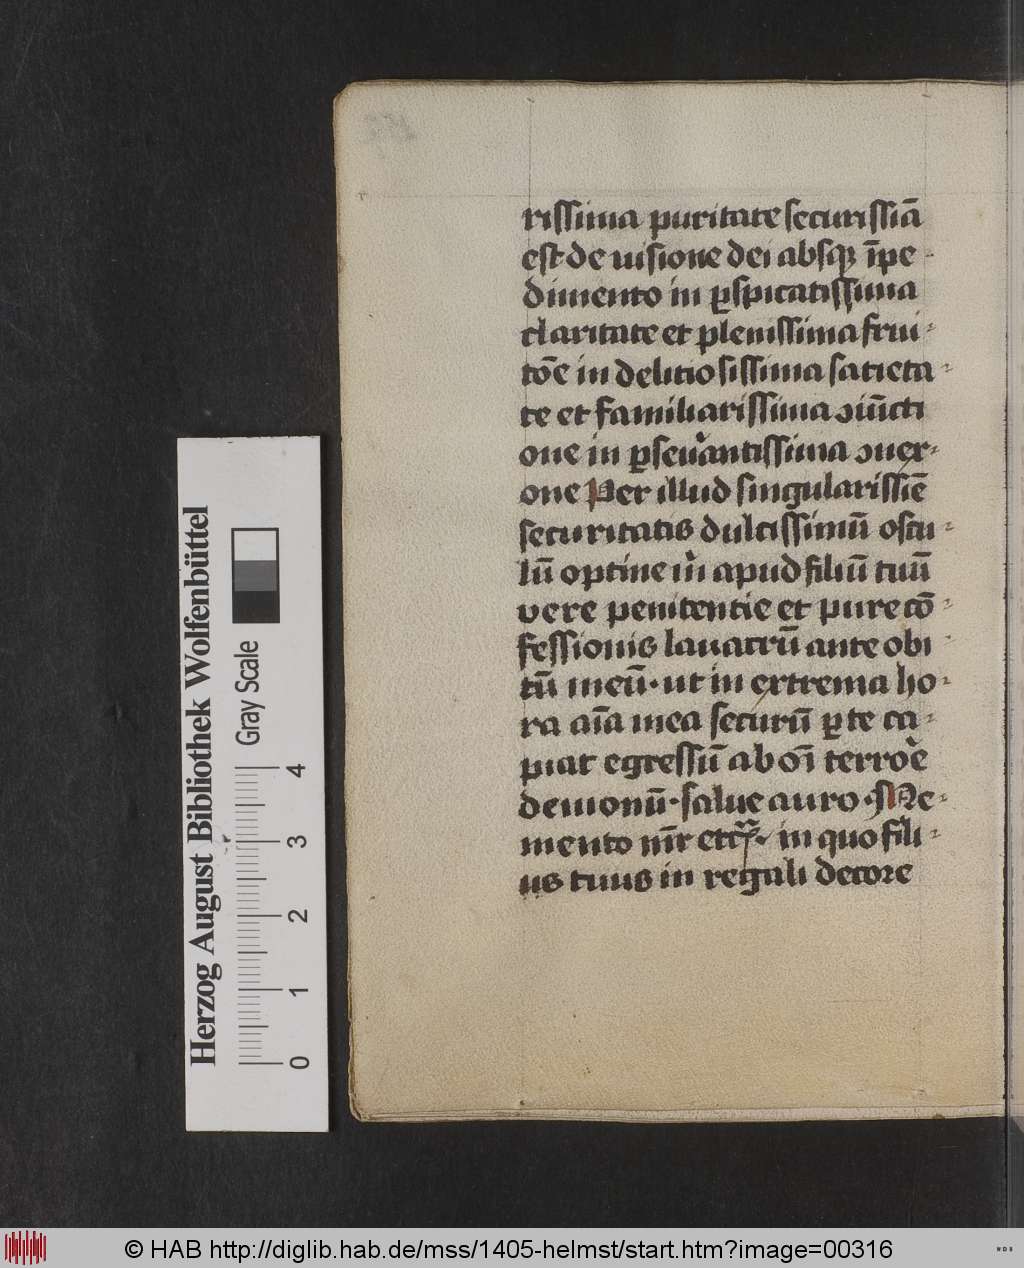 rissima puritate securissiā
est de uisione dei absqꝫ īpe-
dimento in ꝑspicatissima
claritate et plenissima frui-
tōe in delitiosissima satieta-
te et familiarissima ↄiūcti
one in ꝑseu̓antissima ↄuer-
one Per illud singularissiē
securitatis dulcissimū oscu-
lū optine m̓ apud filiū tuū
vere penitentie et pure cō-
fessionis lauacrū ante obi
tū meū · ut in extrema ho-
ra aīa mea securū ꝑ te ca-
piat egressū ab oī terro̓e
demonū · salue auro · Me-
mento mr̄ etc · in quo fili-
us tuus in regali decore
Herzog August Bibliothek Wolfenbüttel
Gray Scale
0 1 2 3 4
© HAB http://diglib.hab.de/mss/1405-helmst/start.htm?image=00316